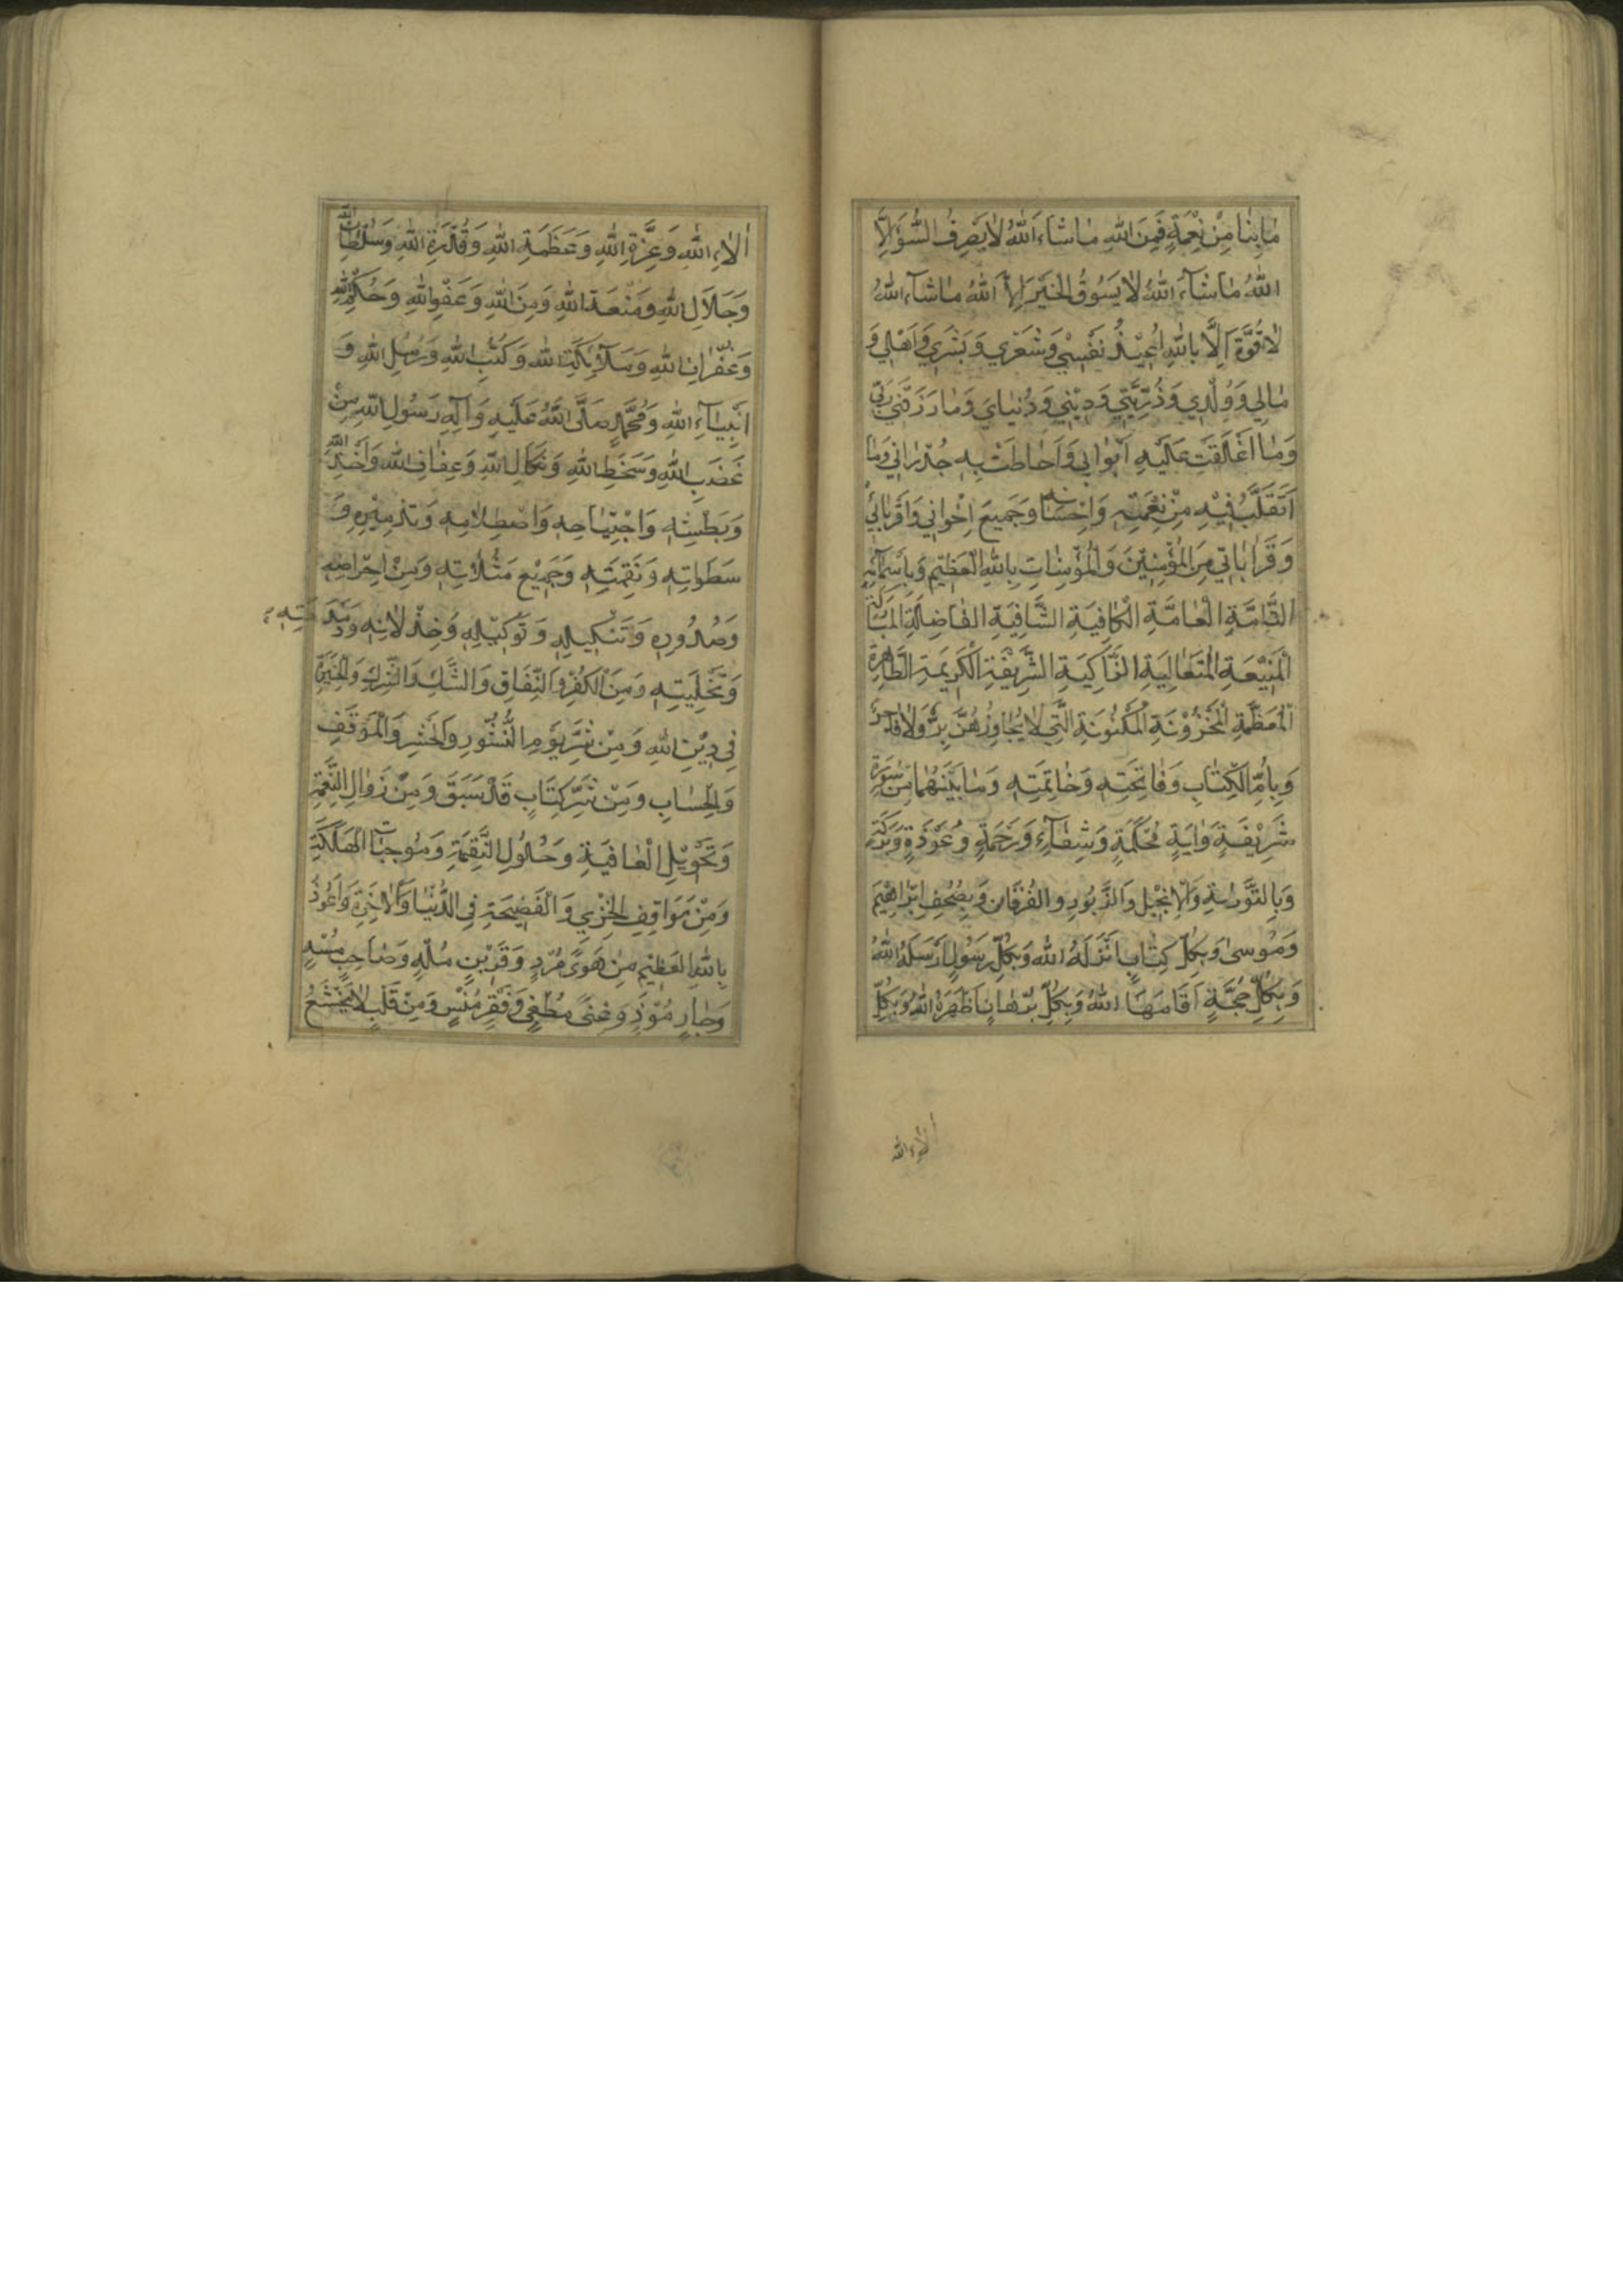 مَا بِنَا مِنْ نِعْمَةٍ فَمِنَ اللهِ مَا شَاءَ اللهُ لَا يَصْرِفُ السُّوءَ اِلَّا
اللهُ مَا شَآءَ اللهُ لَا يَسُوقُ الْخَيْرَ اِلَّا اللهُ مَا شَآءَ اللهُ
لَا قُوَّةَ اِلَّا بِاللهِ اُعِيْذُ نَفْسِيْ وَشَعْرِي وَبَشَرِي وَاَهْلِي وَ
مَالِي وَوُلْدِي وَذُرِّيَّتِي وَدِيْنِي وَدُنْيَايَ وَمَا رَزَقَنِي رَبِّي
وَمَا اَغْلَقَتْ عَلَيْهِ اَبْوَابِي وَاَحَاطَتْ بِهِ جُدْرَانِي وَمَا
اَتَقَلَّبُ فِيْهِ مِنْ نِعْمَتِهِ وَاِحْسَانِهِ وَجَمِيعَ اِخْوَانِي وَاَقْرِبَائِي
وَقَرَابَاتِي مِنَ الْمُؤْمِنِيْنَ وَالْمُؤْمِنَاتِ بِاللهِ الْعَظِيْمِ وَبِاَسْمَآئِهِ
التَّامَّةِ الْعَامَّةِ الْكَافِيَةِ الشَّافِيَةِ الْفَاضِلَةِ الْمُبَارَكَةِ
الْمَنِيْعَةِ الْمُتَعَالِيَةِ الزَّاكِيَةِ الشَّرِيْفَةِ الْكَرِيمَةِ الطَّاهِرَةِ
الْمُعَظَّمَةِ الْمَخْزُوْنَةِ الْمَكْنُونَةِ الَّتِي لَا يُجَاوِزُهُنَّ بَرٌّ وَلَا فَاجِرٌ
وَبِاُمِّ الْكِتَابِ وَفَاتِحَتِهِ وَخَاتِمَتِهِ وَمَا بَيْنَهُمَا مِنْ سُورَةٍ
شَرِيْفَةٍ وَاٰيَةٍ مُحْكَمَةٍ وَشِفَآءٍ وَرَحْمَةٍ وَعُوْذَةٍ وَبَرَكَةٍ
وَبِالتَّوْرٰىةِ وَالْاِنْجِيْلِ وَالزَّبُورِ وَالْفُرْقَانِ وَبِصُحُفِ اِبْرَاهِيْمَ
وَمُوسٰى وَبِكُلِّ كِتَابٍ اَنْزَلَهُ اللهُ وَبِكُلِّ رَسُولٍ اَرْسَلَهُ اللهُ
وَبِكُلِّ حُجَّةٍ اَقَامَهَا اللهُ وَبِكُلِّ بُرْهَانٍ اَظْهَرَهُ اللهُ وَبِكُلِّ
اٰلَاءِ الله
اٰلَاءِ اللهِ وَعِزَّةِ اللهِ وَعَظَمَةِ اللهِ وَقُدْرَةِ اللهِ وَسُلْطَانِ اللهِ
وَجَلَالِ اللهِ وَمَنْعَةِ اللهِ وَمَنِّ اللهِ وَعَفْوِ اللهِ وَحُكْمِ اللهِ
وَغُفْرَانِ اللهِ وَمَلَآئِكَةِ اللهِ وَكُتُبِ اللهِ وَرُسُلِ اللهِ وَ
اَنْبِيَآءِ اللهِ وَمُحَمَّدٍ صَلَّى اللهُ عَلَيْهِ وَاٰلِهِ رَسُولِ اللهِ مِنْ
غَضَبِ اللهِ وَسَخَطِ اللهِ وَنَكَالِ اللهِ وَعِقَابِ اللهِ وَاَخْذِ اللهِ
وَبَطْشِهِ وَاجْتِيَاحِهِ وَاصْطِلَامِهِ وَتَدْمِيْرِهِ وَ
سَطَوَاتِهِ وَنَقِمَتِهِ وَجَمِيْعِ مَثُلَاتِهِ وَمِنْ اِعْرَاضِهِ
وَصُدُودِهِ وَتَنْكِيلِهِ وَتَوْكِيْلِهِ وَخِذْلَانِهِ وَدَمْدَمَتِهِ
وَتَخْلِيَتِهِ وَمِنَ الْكُفْرِ وَالنِّفَاقِ وَالشَّكِّ وَالشِّرْكِ وَالْحَيْرَةِ
فِي دِيْنِ اللهِ وَمِنْ شَرِّ يَوْمِ النُّشُورِ وَالْحَشْرِ وَالْمَوْقِفِ
وَالْحِسَابِ وَمِنْ شَرِّ كِتَابٍ قَدْ سَبَقَ وَمِنْ زَوَالِ النِّعْمَةِ
وَتَحْوِيْلِ الْعَافِيَةِ وَحُلُولِ النَّقِمَةِ وَمُوجِبَاتِ الْهَلَكَةِ
وَمِنْ مَوَاقِفِ الْخِزْيِ وَالْفَضِيْحَةِ فِي الدُّنْيَا وَالْاٰخِرَةِ وَاَعُوذُ
بِاللهِ الْعَظِيْمِ مِنْ هَوًى مُرْدٍ وَقَرِيْنٍ مُلْهٍ وَصَاحِبٍ مُسْهٍ
وَجَارٍ مُوْذٍ وَغِنًى مُطْغٍى وَفَقْرٍ مُنْسٍ وَمِنْ قَلْبٍ لَا يَخْشَعُ